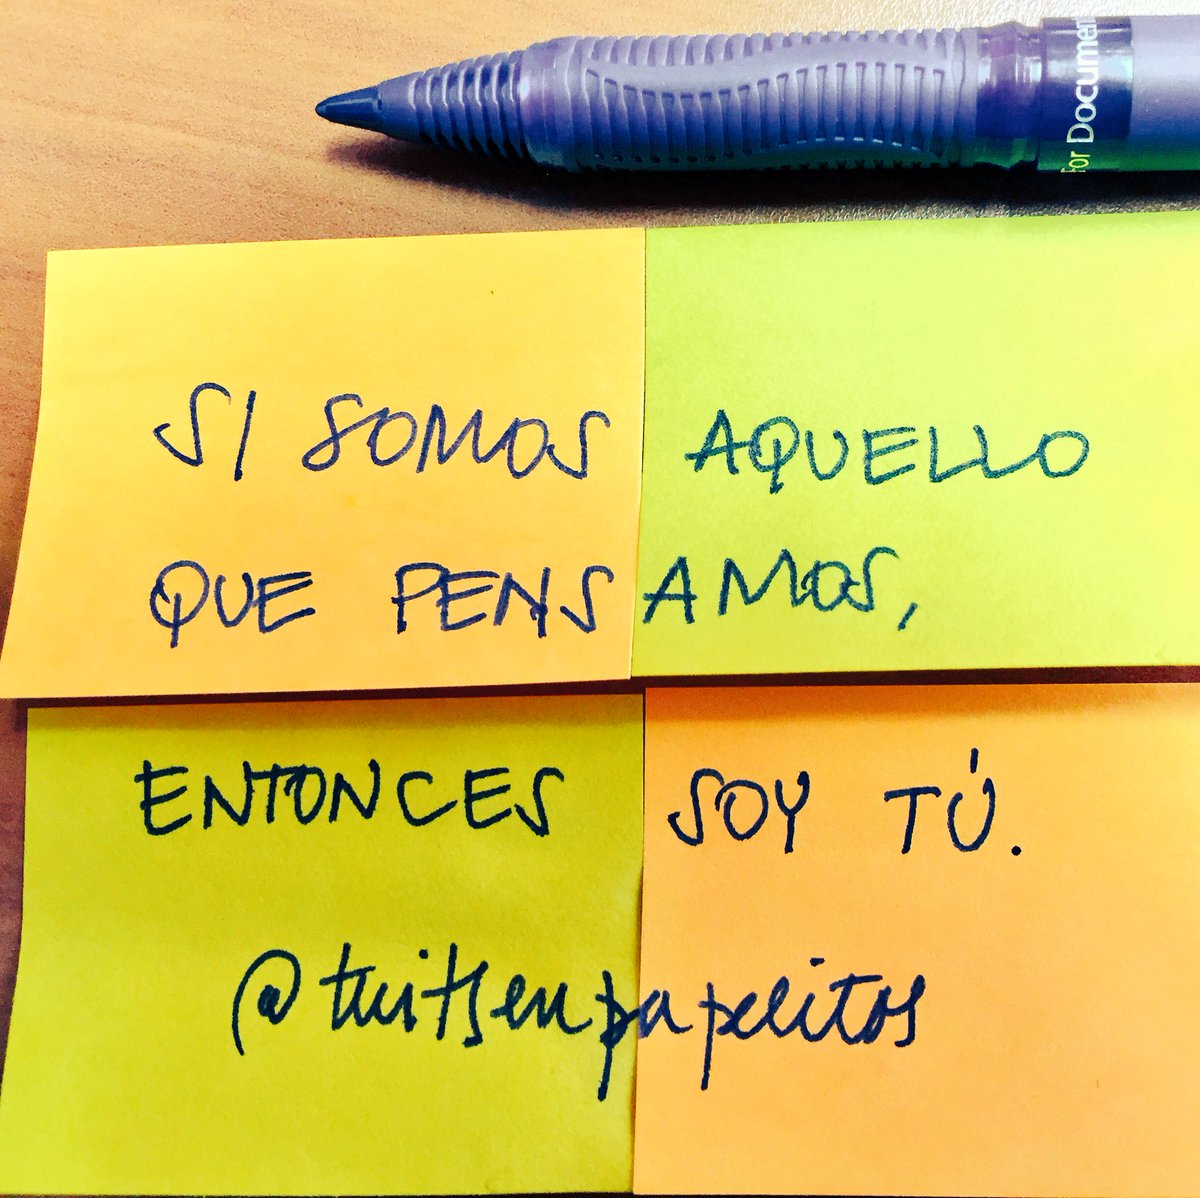 For Documen
SI SOMOS AQUELLO
QUE PENSAMOS,
ENTONCES SOY TÚ.
@tuitsenpapelitos